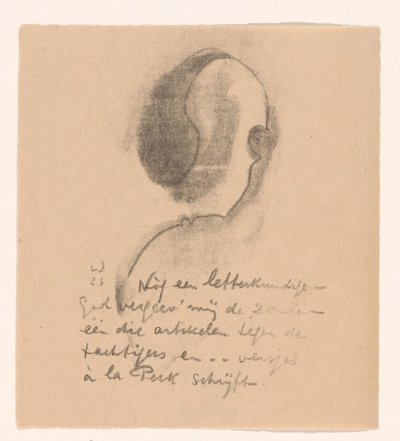 W
23
Nòg een letterkundige –
God vergeev' mij de zonde –
één die artikelen tegen de
tachtigers en .. versjes
à la Perk schrijft.